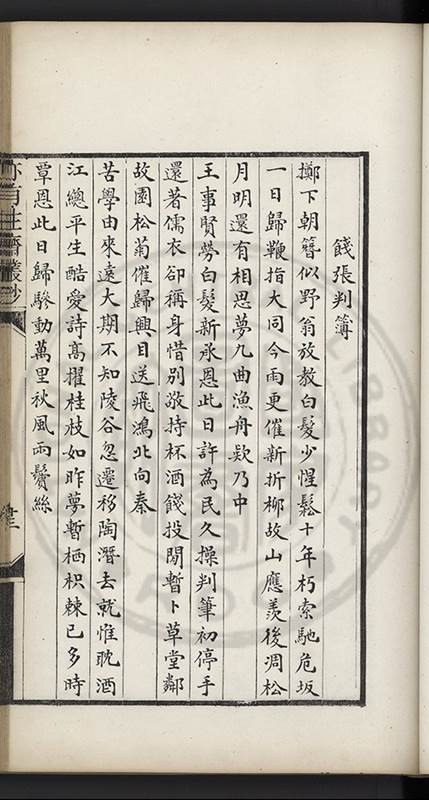 餞張判簿
擲下朝簪似野翁放教白髮少惺鬆十年朽索馳危坂
一日歸鞭指大同今雨更催新折柳故山應羨後凋松
月明還有相思夢九曲漁舟欵乃中
王事賢勞白髮新承恩此日許為民久操判筆初停手
還著儒衣卻稱身惜别敬持杯酒餞投閒暫卜草堂鄰
故園松菊催歸興目送飛鴻北向秦
苦學由來遠大期不知陵谷忽遷移陶潛去就惟耽酒
江總平生酷愛詩高擢桂枝如昨夢暫栖枳棘已多時
覃恩此日歸驂動萬里秋風兩鬢絲